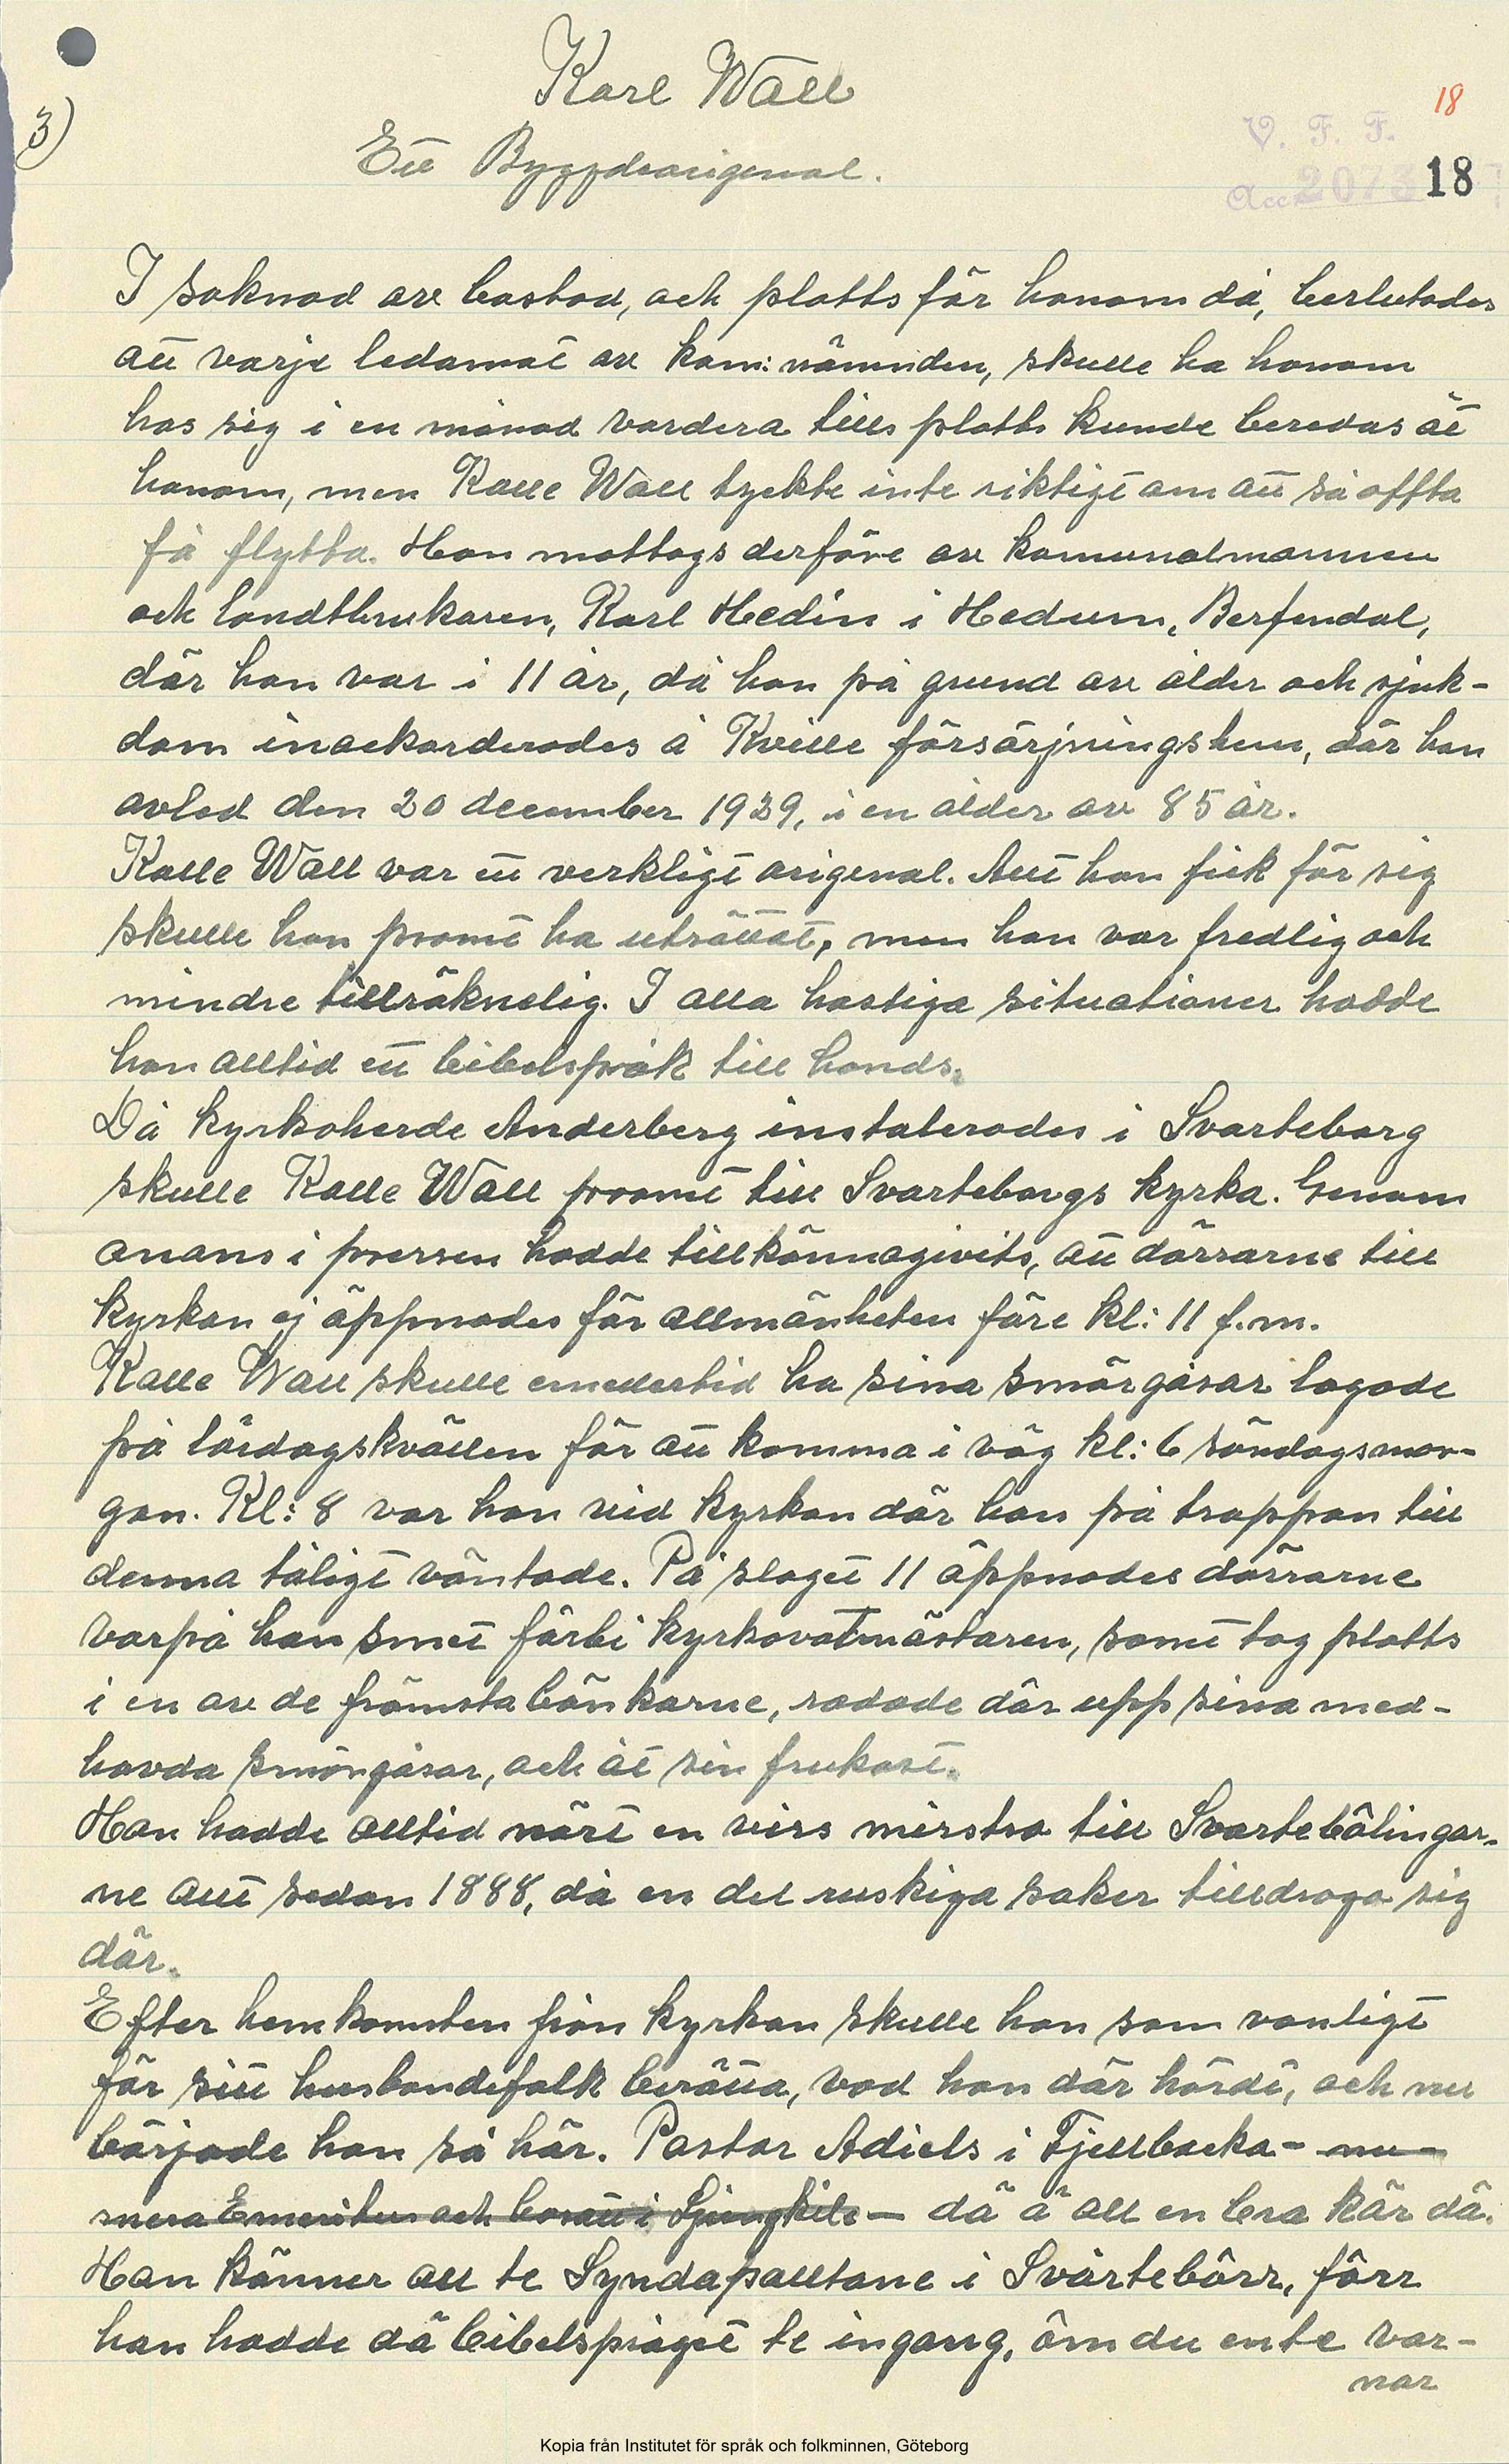 Karl Wall
18
3)
V. F. F.
Ett Byggdeorigenal.
Acc 2073 18
I saknad av bostad, och platts för honom då, beslutades
att varje ledamot av kom: nämnden, skulle ha honom
hos sig i en månad vardera tills platts kunde beredas åt
honom, men Kalle Wall tyckte inte riktigt om att så offta
få flytta. Han mottogs derföre av komunalmannen
och landtbrukaren, Karl Hedin i Hedum, Berfendal,
där han var i 11 år, då han på grund av ålder och sjuk-
dom inackorderades å Kville försörjningshem, där han
avled den 20 december 1939, i en ålder av 85 år.
Kalle Wall var ett verkligt origenal. Allt han fick för sig
skulle han promt ha uträttat, men han var fredlig och
mindre tillräknelig. I alla hastiga situationer hadde
han alltid ett bibelspråk till hands.
Då kyrkoherde Anderberg instalerades i Svarteborg
skulle Kalle Wall promt till Svarteborgs kyrka. Genom
anans i pressen hadde tillkännagivits, att dörrarne till
kyrkan ej öppnades för allmänheten före kl: 11 f.m.
Kalle Wall skulle emellertid ha sina smörgåsar lagade
på lördagskvällen för att komma i väg kl: 6 söndagsmor-
gon. Kl: 8 var han vid kyrkan där han på trappan till
denna tåligt väntade. På slaget 11 öppnades dörrarne
varpå han smet förbi kyrkovatmästaren, samt tog platts
i en av de främsta bänkarne, radade där upp sina med-
havda smörgåsar, och åt sin frukost.
Han hadde alltid närt en viss misstro till Svartebôlingar-
ne allt sedan 1888, då en del ruskiga saker tilldrogo sig
där.
Efter hemkomsten från kyrkan skulle han som vanligt
för sitt husbondefolk berätta, vad han där hördt, och nu
började han så här. Pastor Adiels i Fjellbacka - nu-
mera Emeritus och bosatt i Ljungkile - dä ä all en bra kär dä.
Han känner all te Syndapalltane i Svårtebôrr, fôrr
han hadde dä bibelspråget te ingang, ôm du ente var-
nar
Kopia från Institutet för språk och folkminnen, Göteborg